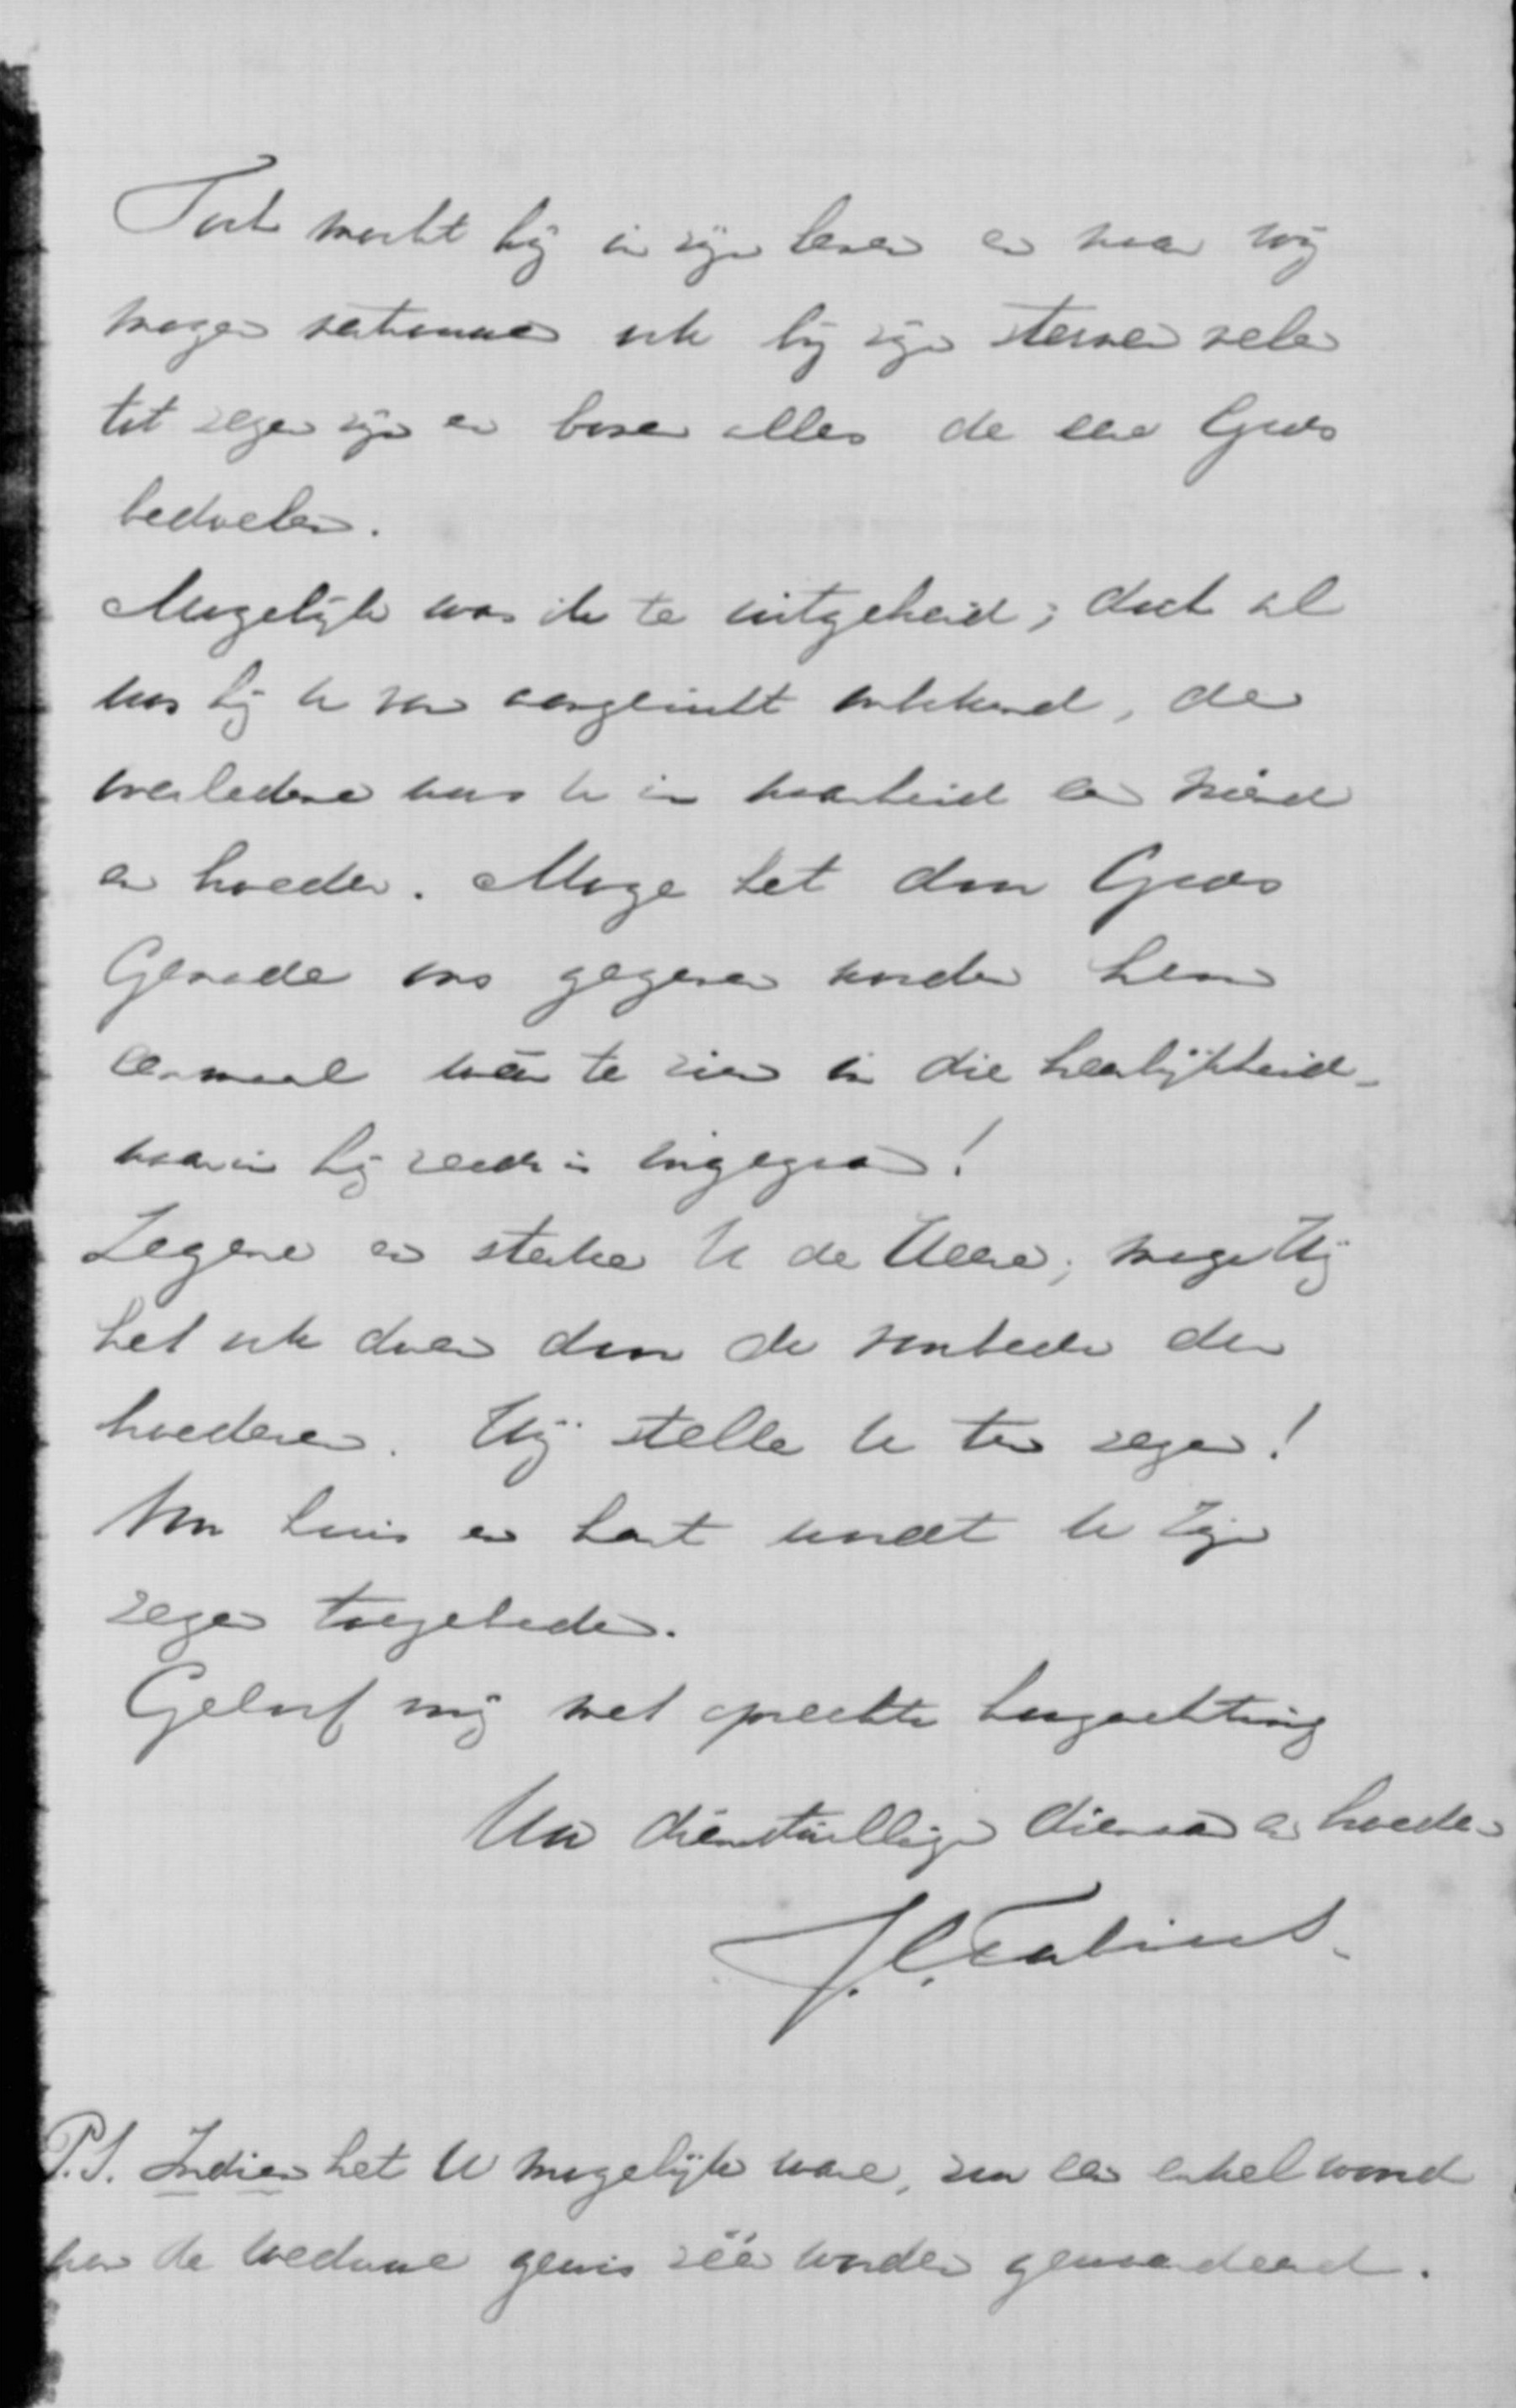 Toch mocht hij in zijn leven en naar wij
mogen vertrouwen ook bij zijn sterven velen
tot zegen zijn en boven alles de eere Gods
bedoelen.
Mogelijk was ik te uitgebreid; doch al
was hij U van aangezicht onbekend, de
overledene was U in waarheid een vriend
en broeder. Moge het door Gods
Genade ons gegeven worden hem
eenmaal wêer te zien in die heerlijkheid
waarin hij reeds is ingegaan!
Zegene en sterke U de Heere; moge Hij
het ook doen door de voorbede der
broederen. Hij stelle U ten zegen!
Voor huis en hart wordt U Zijn
zegen toegebeden.
Geloof mij met oprechte hoogachting
Uw dienstwillige dienaar en broeder
J. C. Fabius.
P.S. Indien het U mogelijk ware, zou een enkel woord
aan de weduwe gewis zéér worden gewaardeerd.